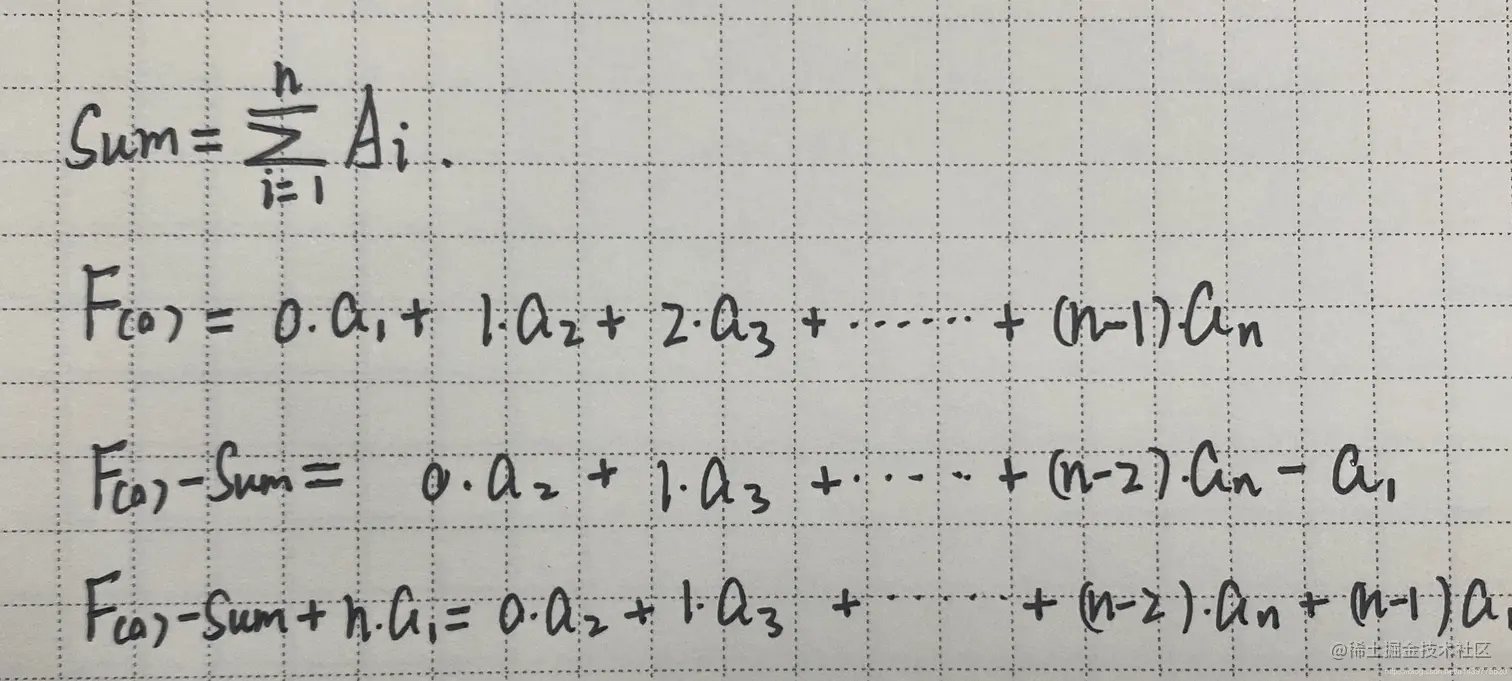 Sum = \sum_{i=1}^{n} A_i .
F(0) = 0·a₁ + 1·a₂ + 2·a₃ + ······ + (n-1)·aₙ
F(0) - Sum = 0·a₂ + 1·a₃ + ····· + (n-2)·aₙ - a₁
F(0) - Sum + n·a₁ = 0·a₂ + 1·a₃ + ······ + (n-2)·aₙ + (n-1)a₁
@稀土掘金技术社区